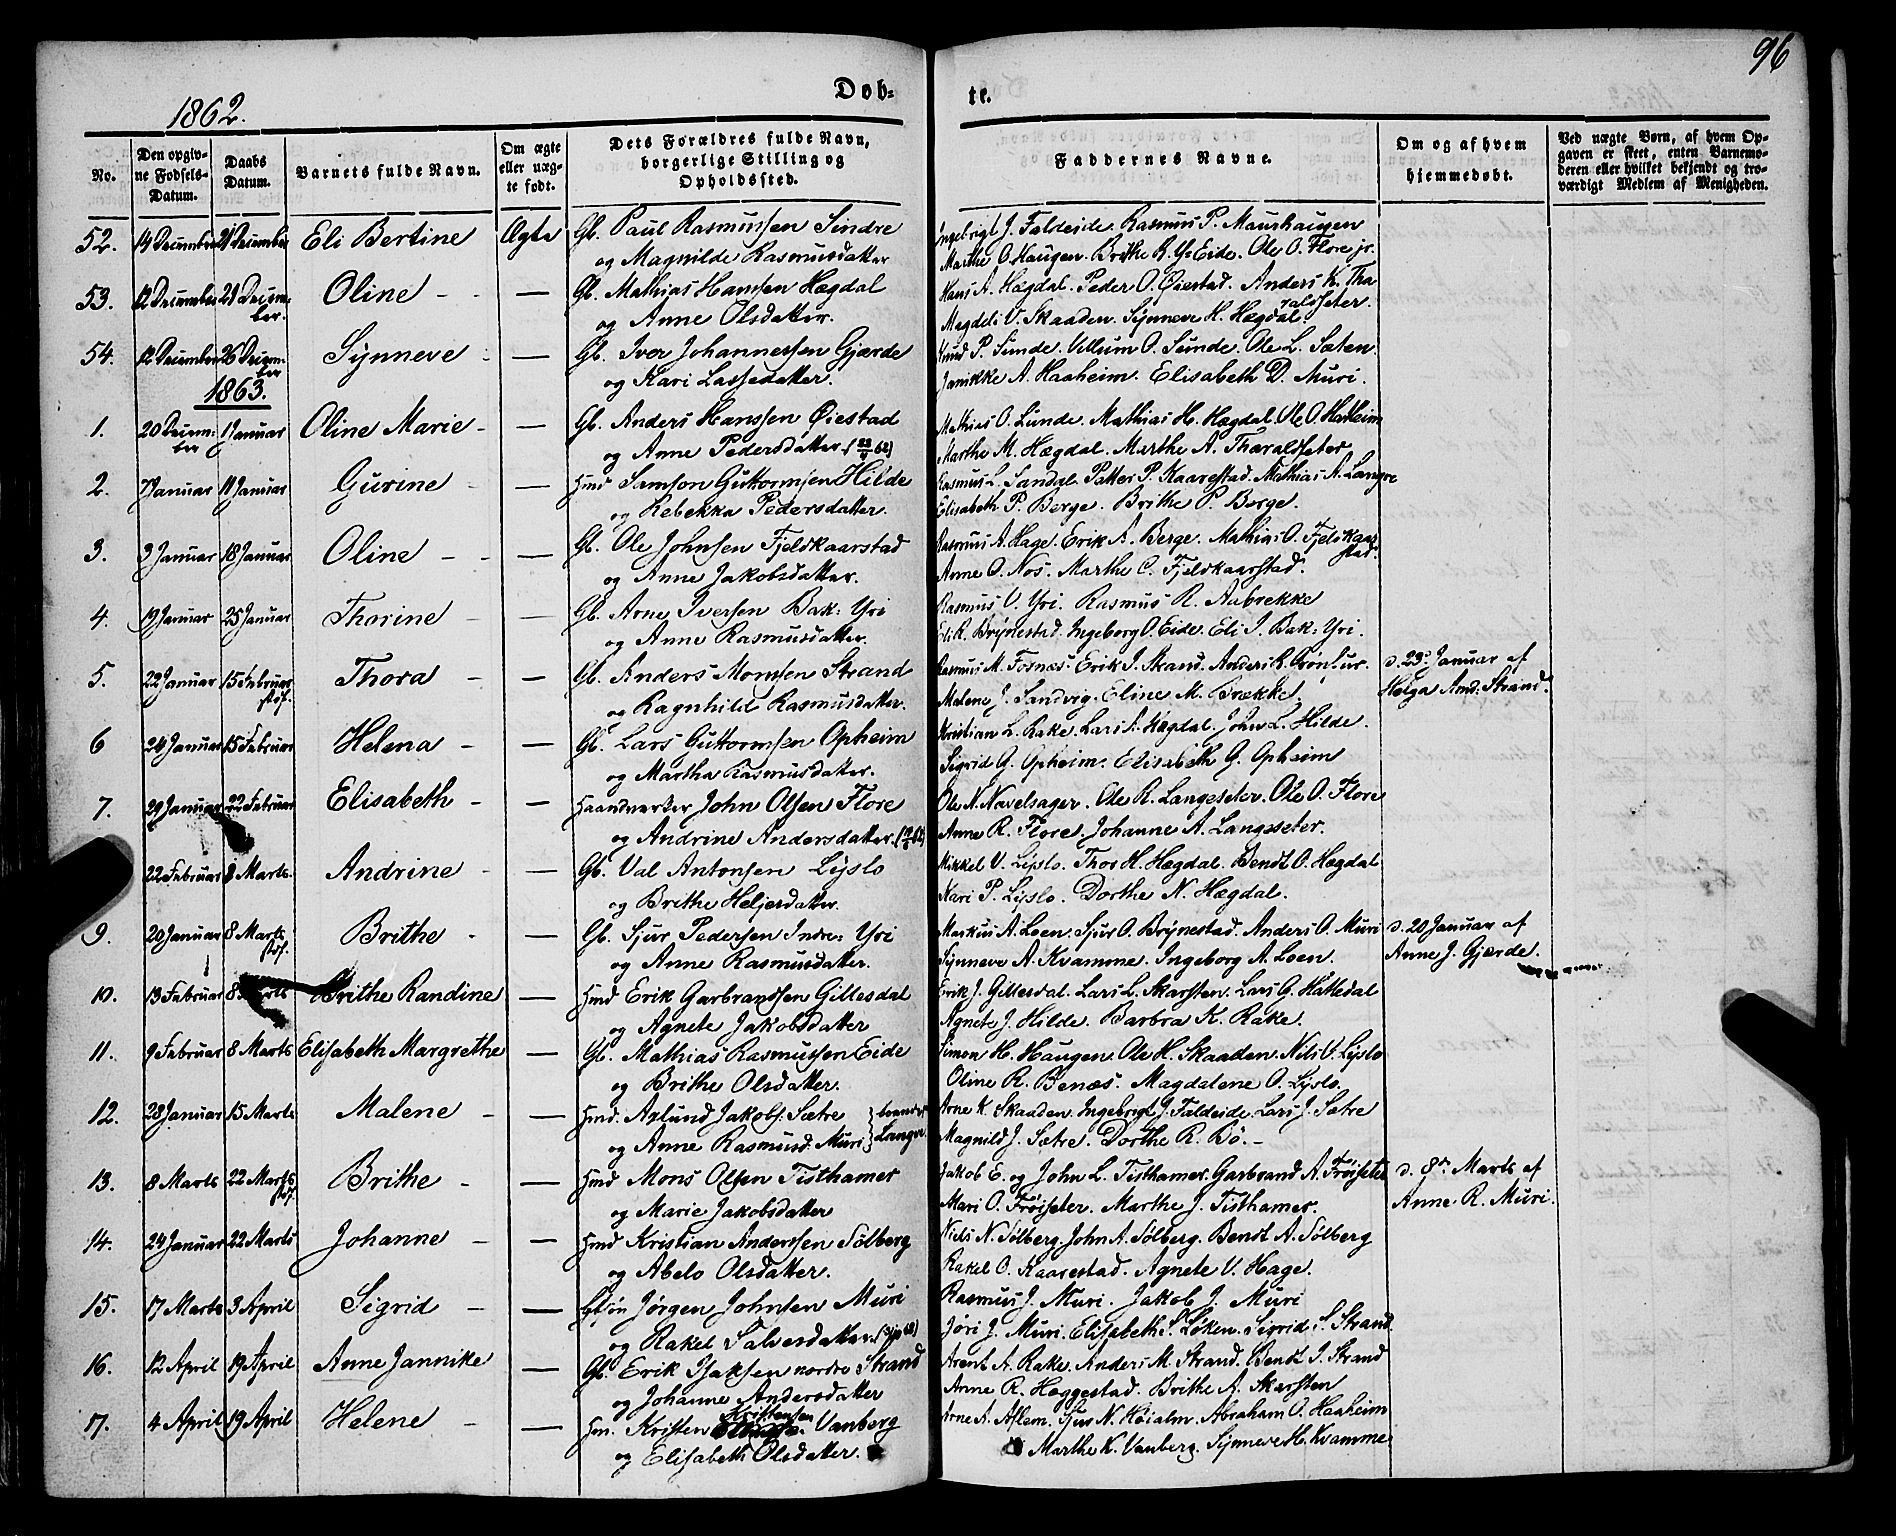 96
1862.
Døb-
te.
No.
Den opgiv-
ne Fødsels-
Datum.
Daabs
Datum.
Barnets fulde Navn.
Om ægte
eller uæg-
te født.
Dets Forældres fulde Navn,
borgerlige Stilling og
Opholdssted.
Faddernes Navne.
Om og af hvem
hjemmedøbt.
Ved uægte Børn, af hvem Op-
gaven er skeet, enten Barnemo-
deren eller hvilket bekjendt og tro-
værdigt Medlem af Menigheden.
52. 14 December 21 December Eli Bertine Ægte Gb. Paul Rasmussen Sindre Ingebrigt J. Faleide. Rasmus P. Maurhaugen
og Magnilde Rasmusdatter Marthe O. Haugen. Brithe R. Y: Eide. Ole O. Flore jr.
53. 12 December 21 Decem- Oline - - — Gb. Mathias Hansen Hægdal Hans A. Hægdal. Peder O. Øiestad. Anders K. Tha
ber. og Anne Olsdatter. Magdeli V. Skaaden. Synneve H. Hægdal. raldseter.
54. 12 December 26 Decem- Synneve - — Gb. Iver Johannessen Gjærde Knud P. Sunde. Villum O. Sunde. Ole L. Sæten.
ber og Kari Lassedatter. Jannikke A. Haaheim. Elisabeth D. Muri.
1863.
1. 20 Decem- 1 Januar Oline Marie - — Gb. Anders Hanssen Øiestad Mathias O. Lunde. Mathias H. Hægdal. Ole O. Haaheim
ber og Anne Pedersdatter. Marthe M. Hægdal. Marthe A. Tharaldseter.
2. 7 Januar 11 Januar Gurine - — Hmd Samson Guttormsen Hilde Rasmus L. Sandal. Petter P. Kaarestad. Mathias A. Langve
og Rebekka Pedersdatter. Elisabeth P. Berge. Brithe P. Berge.
3. 3 Januar 18 Januar Oline - - — Gb. Ole Johnsen Fjeldkaarstad Rasmus A. Hage. Erik A. Berge. Mathias O. Fjeldkaar
og Anne Jakobsdatter. Anne O. Nos. Marthe C. Fjeldkaarstad. stad.
4. 19 Januar 25 Januar Thorine - — Gb. Arne Iversen Bak: Yri Rasmus V. Yri. Rasmus R. Aabrekke
og Anne Rasmusdatter. Eli R. Brynestad. Ingeborg O. Eide. Eli I. Bak: Yri.
5. 22 Januar 15 Februar Thora - — Gb. Anders Monsen Strand Rasmus M. Fosnæs. Erik I. Strand. Anders R. d. 23de Januar af
stof. og Ragnhild Rasmusdatter. Malene J. Sandvig. Eline M. Brække. Helga And: Strand.
6 24 Januar 15 Februar Helena - — Gb. Lars Guttormsen Opheim Kristian L. Rake. Lars A. Hægdal. John L. Hilde.
og Martha Rasmusdatter. Sigrid G. Opheim. Elisabeth G. Opheim
7. 29 Januar 22 Februar Elisabeth - — Haandverker John Olsen Flore Ole N. Navelsager. Ole R. Langeseter. Ole O. Flore
og Andrine Andersdatter. Anne R. Flore. Johanne A. Langeseter.
22 Februar 8 Marts. Andrine - — Gb. Val Antonsen Lyslo Mikkel V. Lyslo. Thor H. Hægdal. Bendt O. Hægdal
og Brithe Heljesdatter. Kari P. Lyslo. Dorthe N. Hægdal.
9. 20 Januar 8 Marts Brithe - — Gb. Sjur Pedersen Indre: Yri Markus A. Loen. Sjur O. Brynestad. Anders O. Muri d. 20 Januar af
stof. og Anne Rasmusdatter. Synneve A. Kvamme. Ingeborg A. Loen. Anne J. Gjærde.
10. 13 Februar 8 Marts Brithe Randine — Hmd Erik Garbrandsen Gillesdal Erik J. Gillesdal. Lars L. Skarsten. Lars G. Hattedal
og Agnete Jakobsdatter Agnete J. Hilde. Barbra K. Rake.
11. 9 Februar 8 Marts Elisabeth Margrethe — Gb. Mathias Rasmussen Eide Simon H. Haugen. Ole H. Skaaden. Nils V. Lyslo
og Brithe Olsdatter. Oline R. Benæs. Magdalene O. Lyslo.
12. 28 Januar 15 Marts Malene - — Hmd. Aslund Jakobs. Sætre Arne K. Skaaden. Ingebrigt J. Faleide. Lars J. Sætre
og Anne Rasmusd. Muri Magnild J. Sætre. Dorthe R. Bö. -
13. 8 Marts 22 Marts Brithe - — Hmd Mons Olsen Tisthamer Jakob E. og John L. Tisthamer. Garbrand A. Frøiseter d. 8de Marts af
stof. og Marie Jakobsdatter Mari O. Frøiseter. Marthe J. Tisthamer. Anne R. Muri.
14. 24 Januar 22 Marts Johanne - — Hmd Kristian Anderssen Sølberg Niels N. Sølberg. John A. Sølberg. Bendt A. Sølberg
og Abelo Olsdatter. Rakel O. Kaarestad. Agnete V. Hage.
15. 17 Marts 3 April Sigrid - — Gbsøn Jørgen Johnsen Muri Rasmus J. Muri. Jakob J. Muri
og Rakel Salvesdatter. Jøri J. Muri. Elisabeth S. Løken. Sigrid S. Strand.
16. 12 April 19 April Anne Jannike — Gb. Erik Isaksen nordre Strand Arent A. Rake. Anders M. Strand. Bendt I. Strand
og Johanne Andersdatter Anne R. Heggestad. Brithe A. Skarsten
17. 4 April 19 April Helene - — Hm. Kristen Kristensen Vanberg Arne A. Aflem. Sjur N. Høialm. Abraham O. Haaheim
og Elisabeth Olsdatter. Marthe K. Vanberg. Synneve H. Kvamme